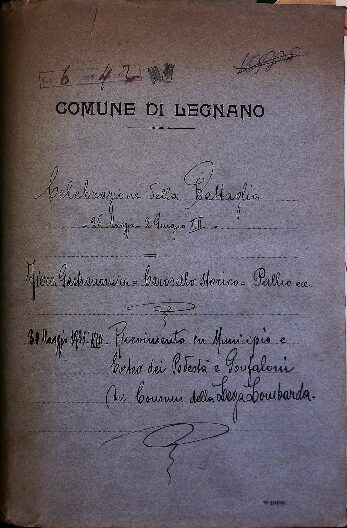 6 42
COMUNE DI LEGNANO
Celebrazione della Battaglia
Maggio 2 Giugno XIII
Fiera Gastronomica = Carosello Storico - Palio ecc
30 Maggio 1935-XIII - Ricevimento in Municipio e
Corteo dei Podestà e Gonfaloni
dei Comuni della Lega Lombarda.